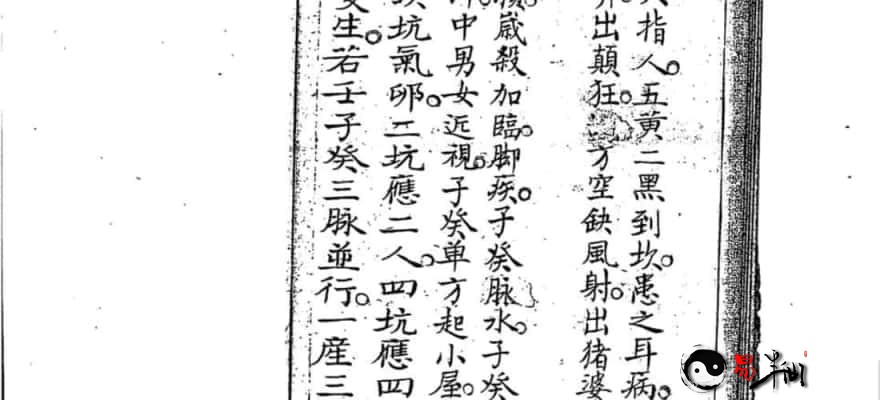 指人。五黄二黑到坎。患之耳病。
出顛狂。方空缺風射。出猪婆
歲殺加臨。脚疾。子癸脉水。子癸
中男女近視。子癸单方起小屋。
坑氣卯。二坑應二人。四坑應四
生。若壬子癸三脉並行。一産三